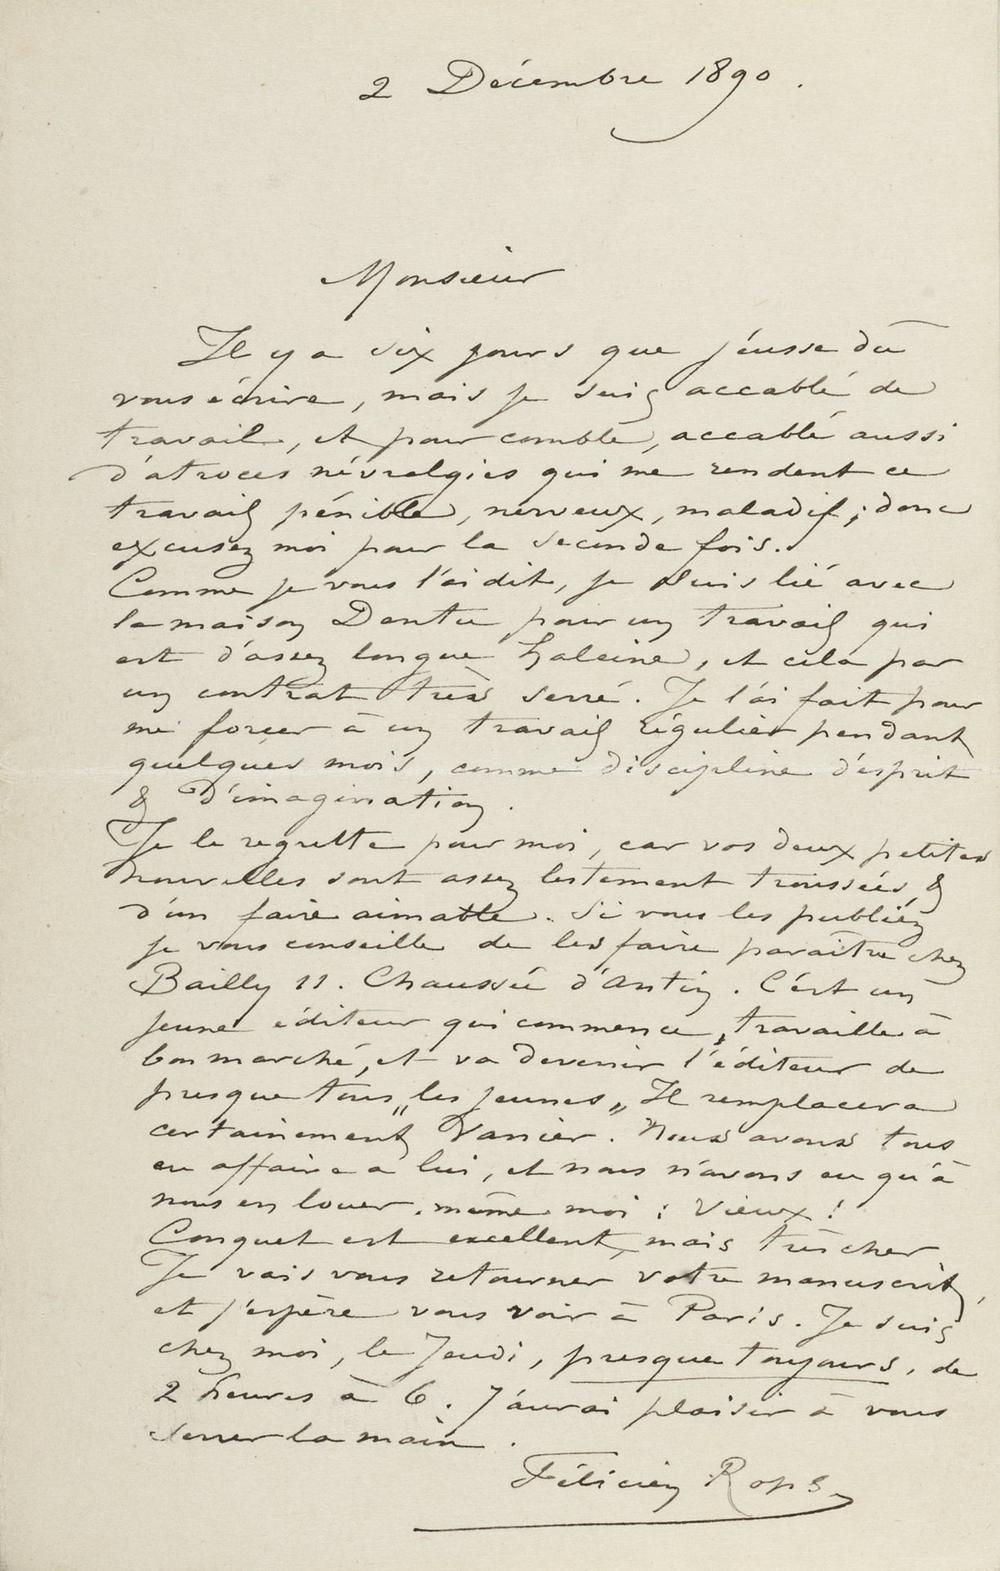 2 Décembre 1890.
Monsieur
Il y a six jours que j'eusse dû
vous écrire, mais je suis accablé de
travail, et pour comble, accablé aussi
d'atroces névralgies qui me rendent ce
travail pénible, nerveux, maladif ; donc
excusez moi pour la seconde fois.
Comme je vous l'ai dit, je suis lié avec
la maison Dentu pour un travail qui
est d'assez longue haleine, et cela par
un contrat très serré. Je l'ai fait pour
me forcer à un travail régulier pendant
quelques mois, comme discipline d'esprit
& d'imagination.
Je le regrette pour moi, car vos deux petites
nouvelles sont assez lestement troussées &
d'un faire aimable. Si vous les publiez
je vous conseille de les faire paraître chez
Bailly 11. Chaussée d'Antin. C'est un
jeune éditeur qui commence, travaille à
bon marché, et va devenir l'éditeur de
presque tous „les jeunes„ Il remplacera
certainement Vanier. Nous avons tous
eu affaire a lui, et nous n'avons eu qu'à
nous en louer. même moi : Vieux !
Conquet est excellent, mais très cher
Je vais vous retourner votre manuscrit,
et j'espère vous voir à Paris. Je suis
chez moi, le Jeudi, presque toujours, de
2 heures à 6. J'aurai plaisir à vous
serrer la main.
Félicien Rops